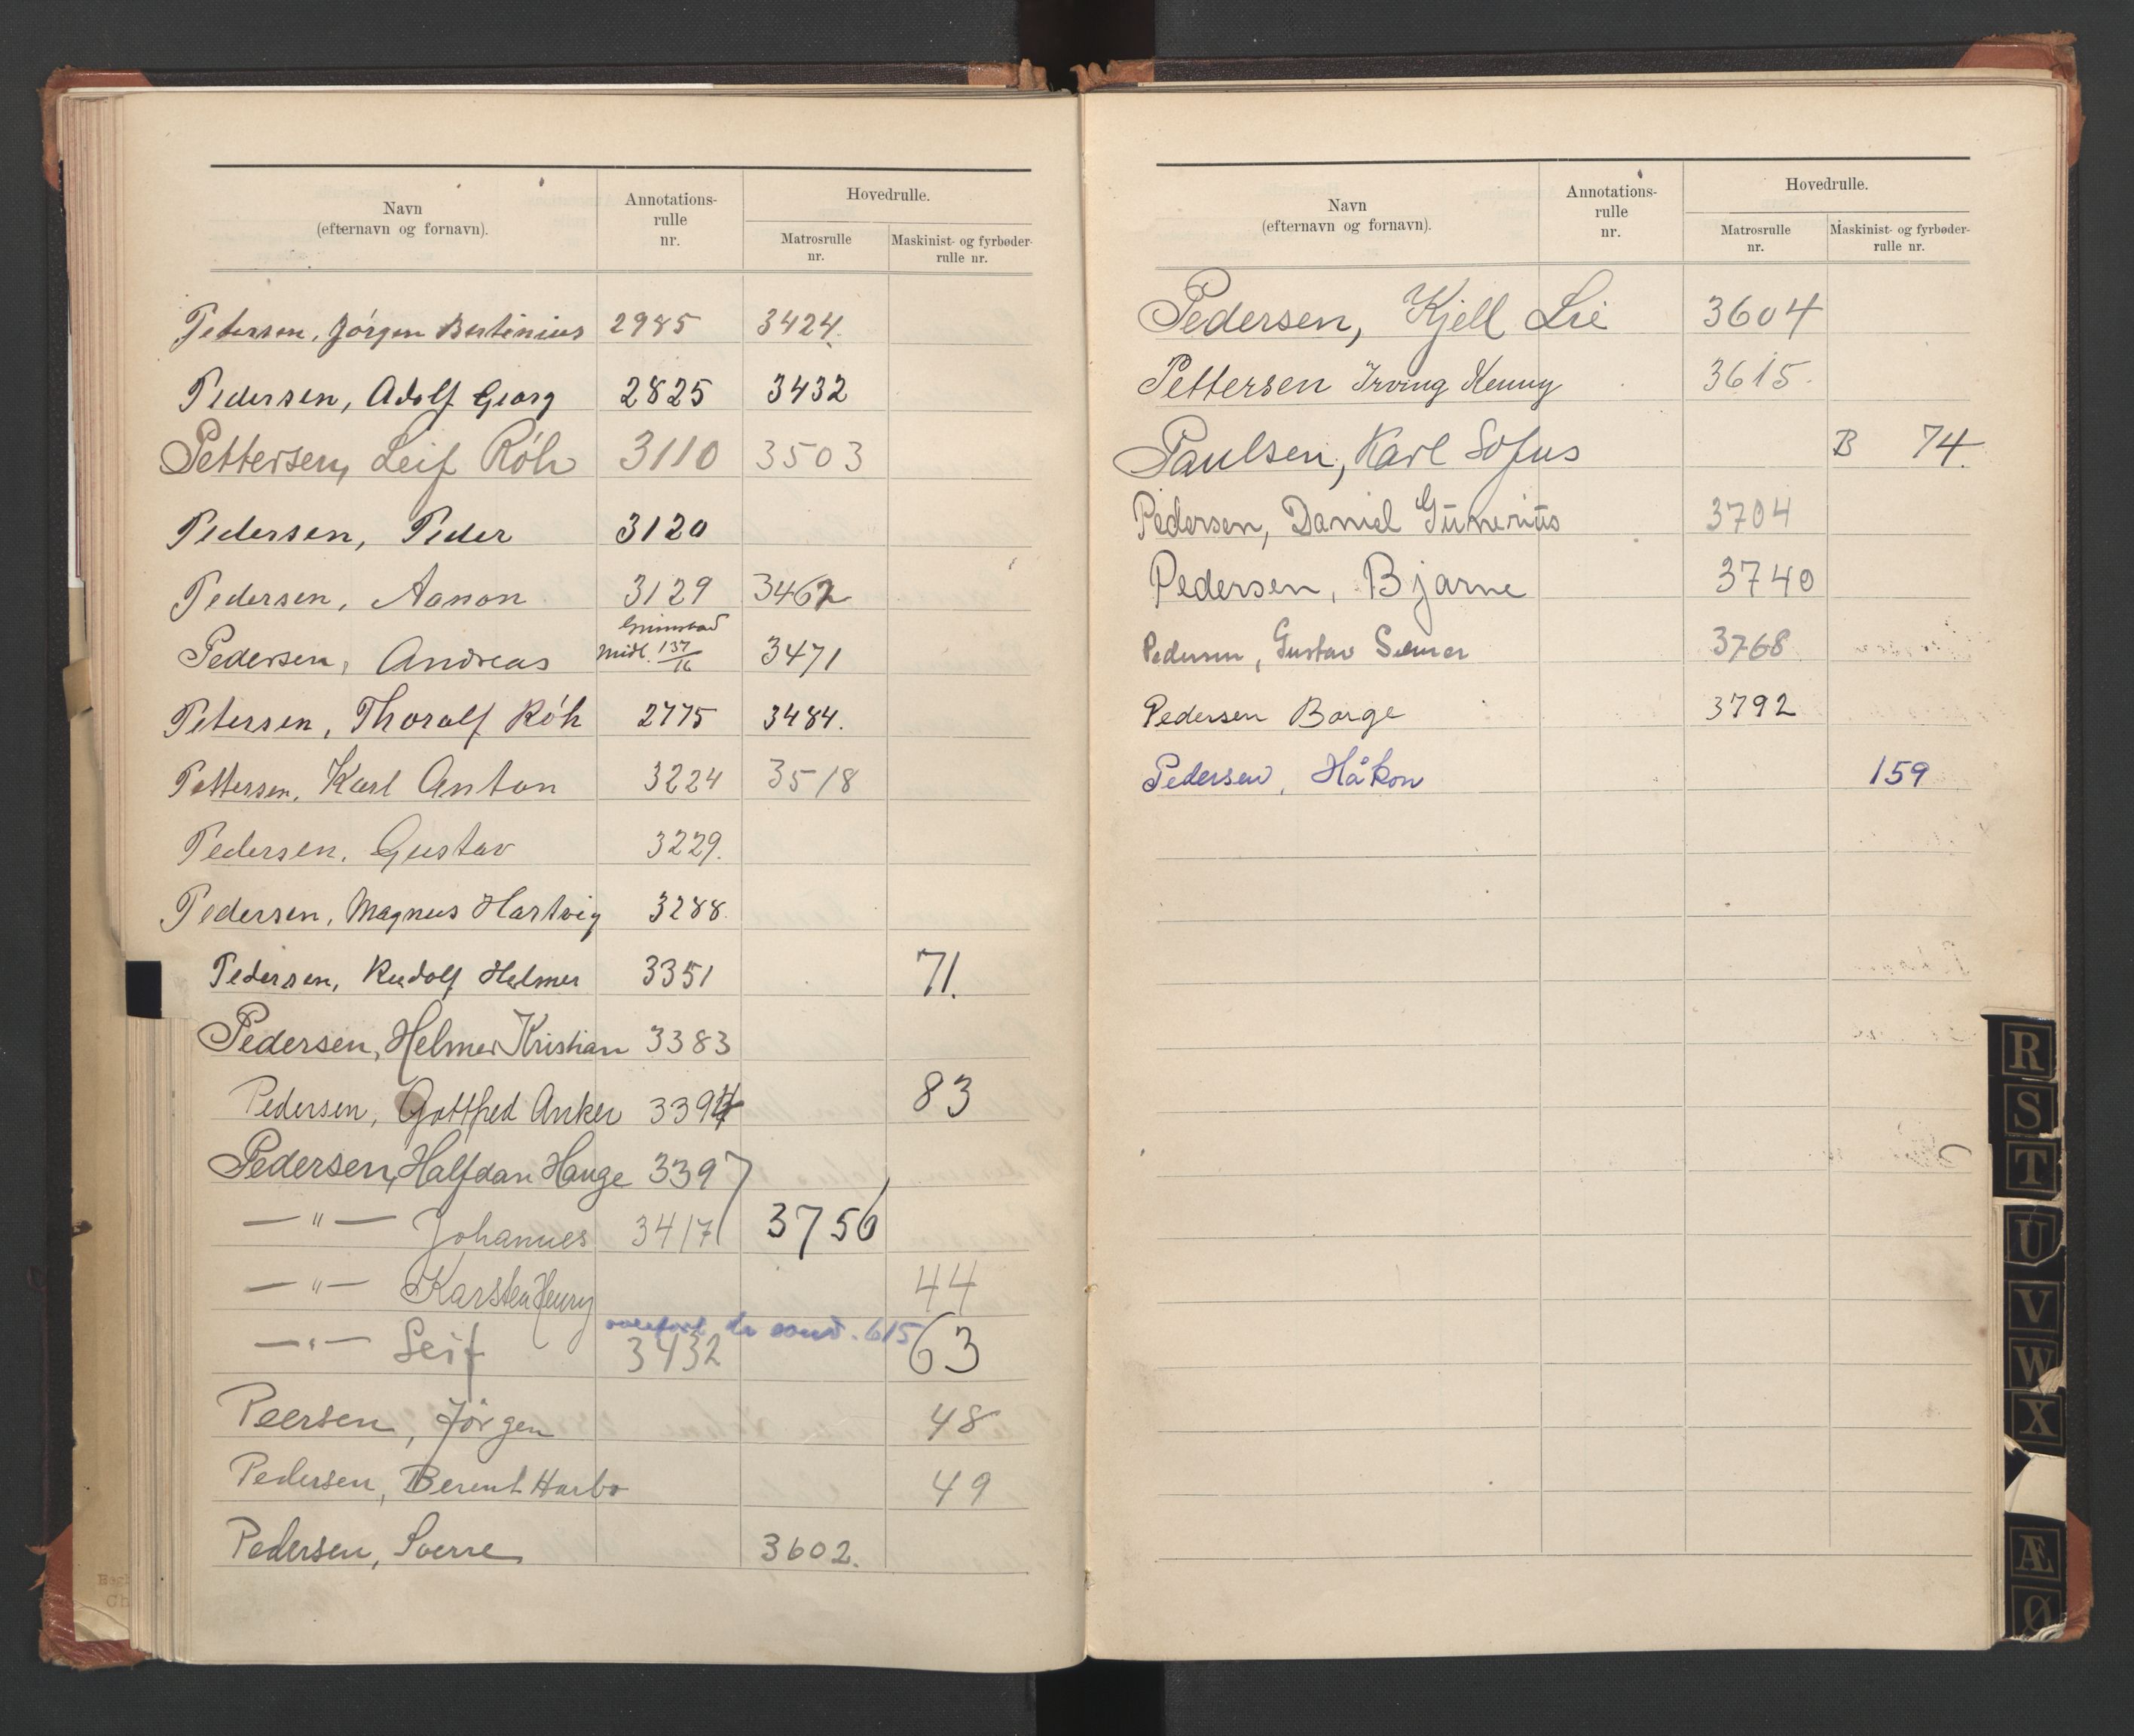 Navn
(efternavn og fornavn).
Annotations-
rulle
nr.
Hovedrulle.
Matrosrulle
nr.
Maskinist- og fyrbøder-
rulle nr.
Petersen, Jörgen Bertinius 2985 3424.
Pedersen, Adolf Georg 2825 3432
Pettersen, Leif Röh 3110 3503
Pedersen, Peder 3120
Pedersen, Aanon 3129 3462
Pedersen, Andreas Grimstad midl. 137/16 3471
Petersen, Thoralf Röh 2775 3484.
Pettersen, Karl Anton 3224 3518
Pedersen, Gustav 3229.
Pedersen, Magnus Hartvig 3288.
Pedersen, Rudolf Helmer 3351 71.
Pedersen, Helmer Kristian 3383
Pedersen, Gottfred Anker 3394 83
Pedersen, Halfdan Hauge 3397
—"— Johannes 3417 3756
—"— Karsten Henry 44
615
—"— Leif 3432 63
Peersen, Jörgen 48
Pedersen, Berent Harbo 49
Pedersen, Sverre 3602.
Navn
(efternavn og fornavn).
Annotations-
rulle
nr.
Hovedrulle.
Matrosrulle
nr.
Maskinist- og fyrbøder-
rulle nr.
Pedersen, Kjell Lie 3604
Pettersen Irving Henny 3615.
Paulsen, Karl Sofus B 74.
Pedersen, Daniel Gunerius 3704
Pedersen, Bjarne 3740
Pedersen, Gustav 3768
Pedersen Borge 3792
Pedersen, Håkon 159
R
S
T
U
V
W
X
Æ
Ø